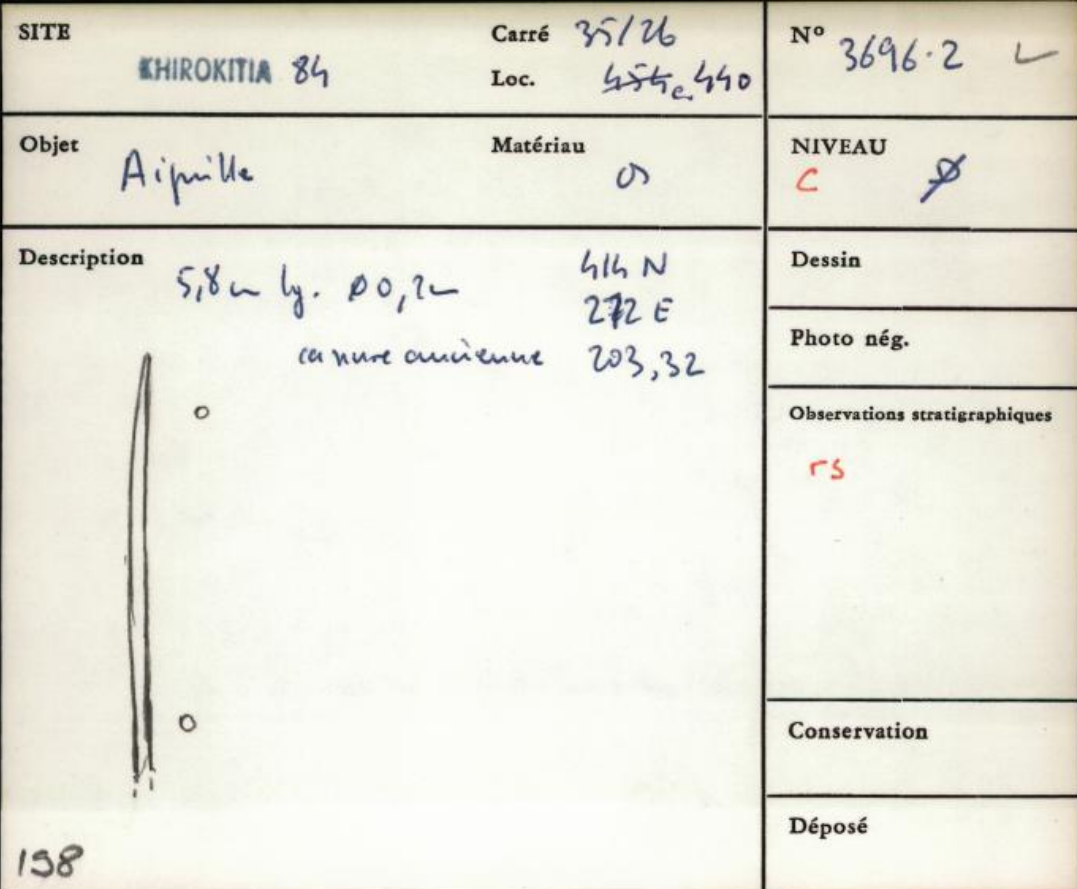 SITE
KHIROKITIA 84
Carré 35/26
Loc. 440
N° 3696.2
Objet
Aiguille
Matériau
os
NIVEAU
C
Description
5,8 cm lg. ø 0,2 cm
cassure ancienne
414 N
272 E
203,32
Dessin
Photo nég.
Observations stratigraphiques
rs
Conservation
Déposé
198